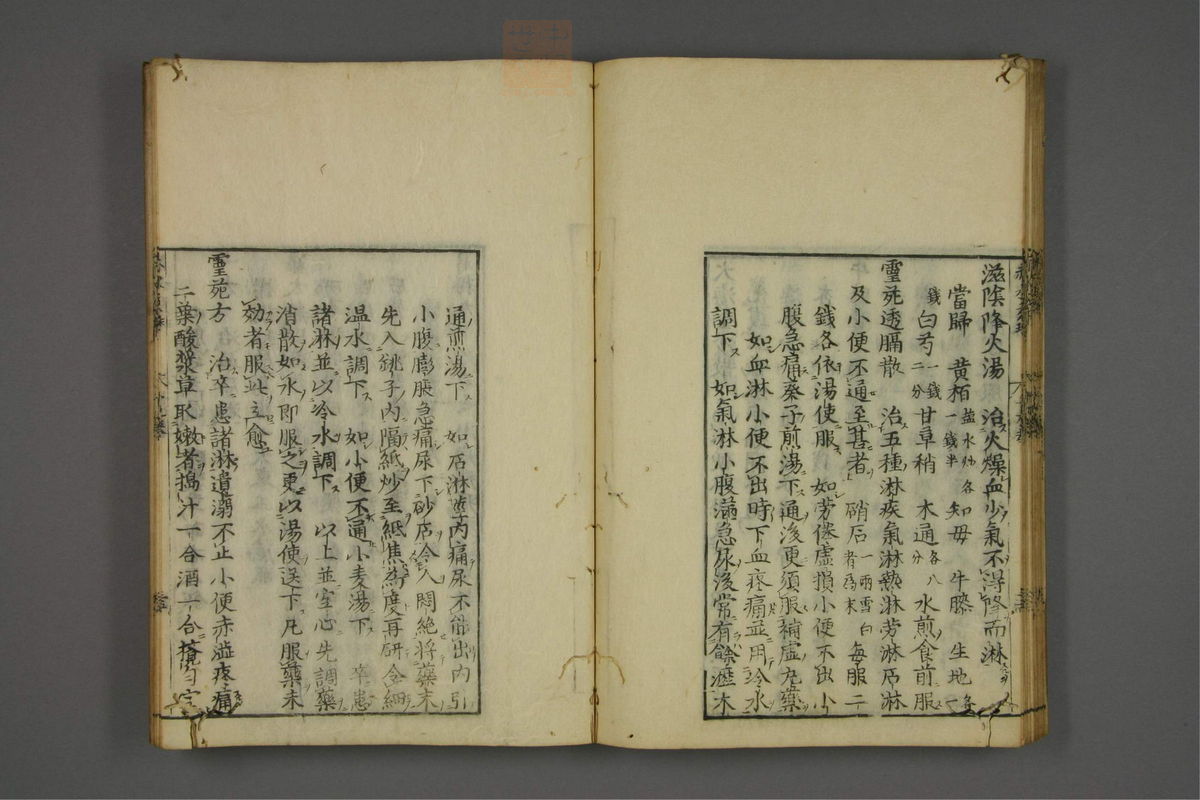 滋陰降火湯 治火燥血少氣不得降而淋
當歸 黄栢 塩水炒各一錢半 知母 牛膝 生地 各一
錢 白芍 一錢二分 甘草稍 木通 各八分 水煎食前服
靈苑透膈散 治五種淋疾氣淋熱淋労淋石淋
及小便不通至甚者 硝石 一両雪白者為末 毎服二
錢各依湯使服 如労倦虚損小便不出小
腹急痛葵子煎湯下通後更須服補虚丸藥
如血淋小便不出時下血疼痛並用冷水
調下 如氣淋小腹滿急尿後常有餘瀝木
通煎湯下 如石淋莖内痛尿不能出内引
小腹膨脹急痛尿下砂石令人悶絶将藥末
先入銚子内隔紙炒至紙焦為度再研令細
温水調下 如小便不通小麦湯下 卒患
諸淋並以冷水調下 以上並空心先調藥
消散如水即服之更以湯使送下凡服藥未
効者服此立愈
靈苑方 治卒患諸淋遺溺不止小便赤澁疼痛
三葉酸漿草取嫩者搗汁一合酒一合攪匀空